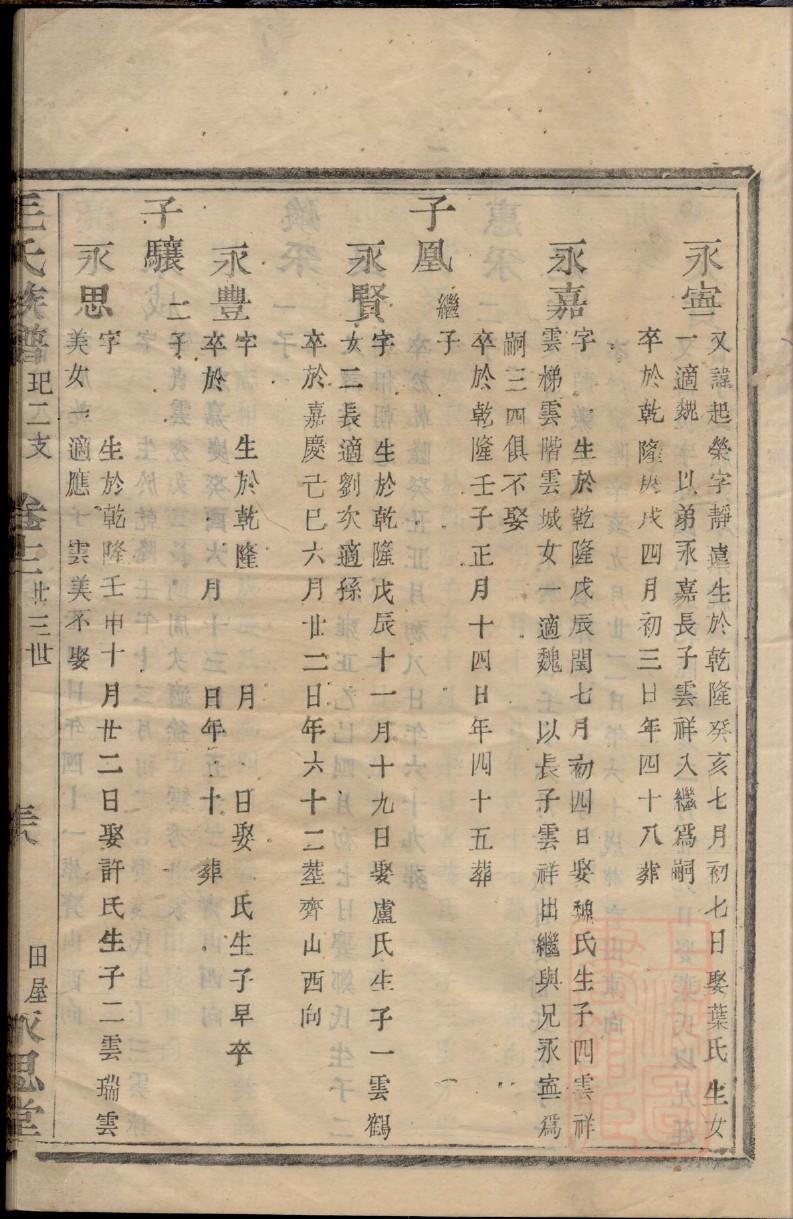 永寗
又諱起榮字靜遠生於乾隆癸亥七月初七日娶葉氏生女
一適魏 以弟永嘉長子雲祥入繼爲嗣
卒於乾隆庚戌四月初三日年四十八葬
永嘉
字 生於乾隆戊辰閏七月初四日娶魏氏生子四雲祥
雲梯雲階雲城女一適魏 以長子雲祥出繼與兄永寗爲
嗣三四俱不娶
卒於乾隆壬子正月十四日年四十五葬
子凰 繼子
永賢
字 生於乾隆戊辰十一月十九日娶盧氏生子一雲鶴
女二長適劉次適孫
卒於嘉慶己巳六月廿二日年六十二葬齊山西向
永豐
字 生於乾隆 月 日娶 氏生子早卒
卒於 月 日年 十 葬
子驤 二子
永思
字 生於乾隆壬申十月廿二日娶許氏生子二雲瑞雲
美女一適應 雲美不娶
王氏族譜 玘二支 卷十二 廿三世 田屋 永思堂